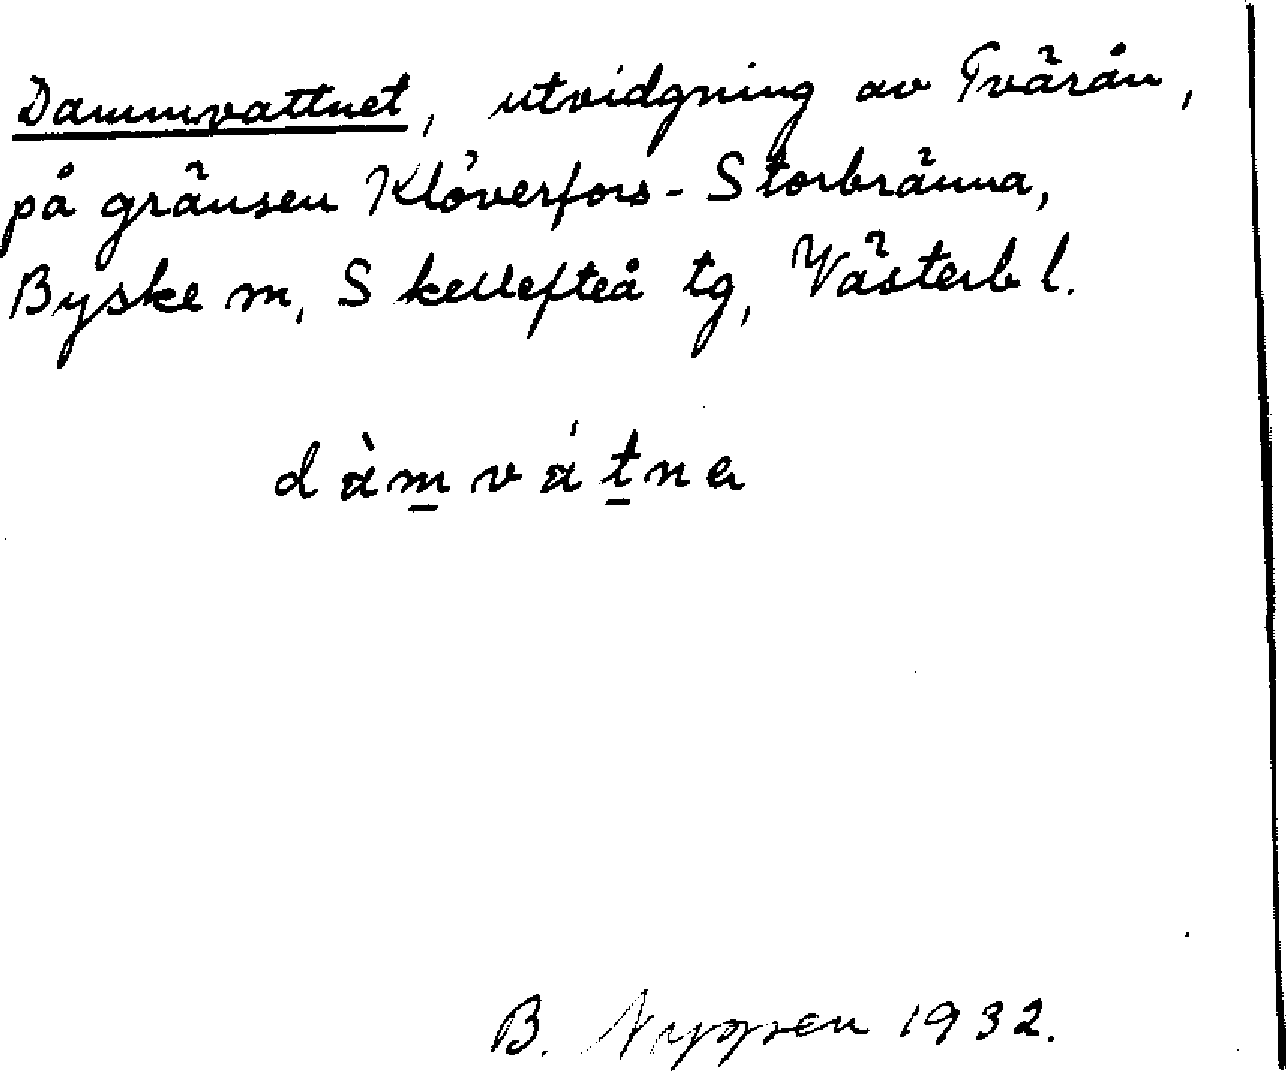 Dammvattnet, utvidgning av Tvärån,
på gränsen Klöverfors-Storbränna,
Byske sn, Skellefteå tg, Västerb l.
dàm̲vát̲na
B. Nygren 1932.